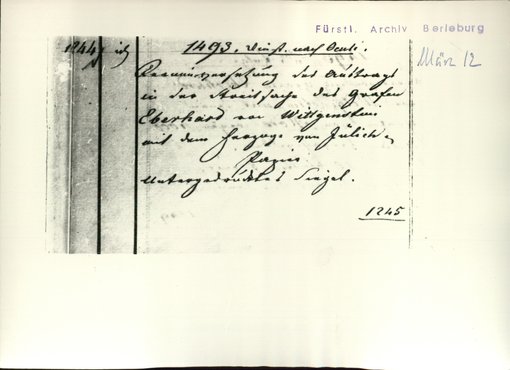 Fürstl. Archiv Berleburg
März 12
1244
1493. Dinst. nach Oculi.
des Auftrags
in der Streitsache des Grafen
Eberhard von Wittgenstein
mit dem Herzoge von Jülich.
Papier
Untergedrücktes Siegel.
1245